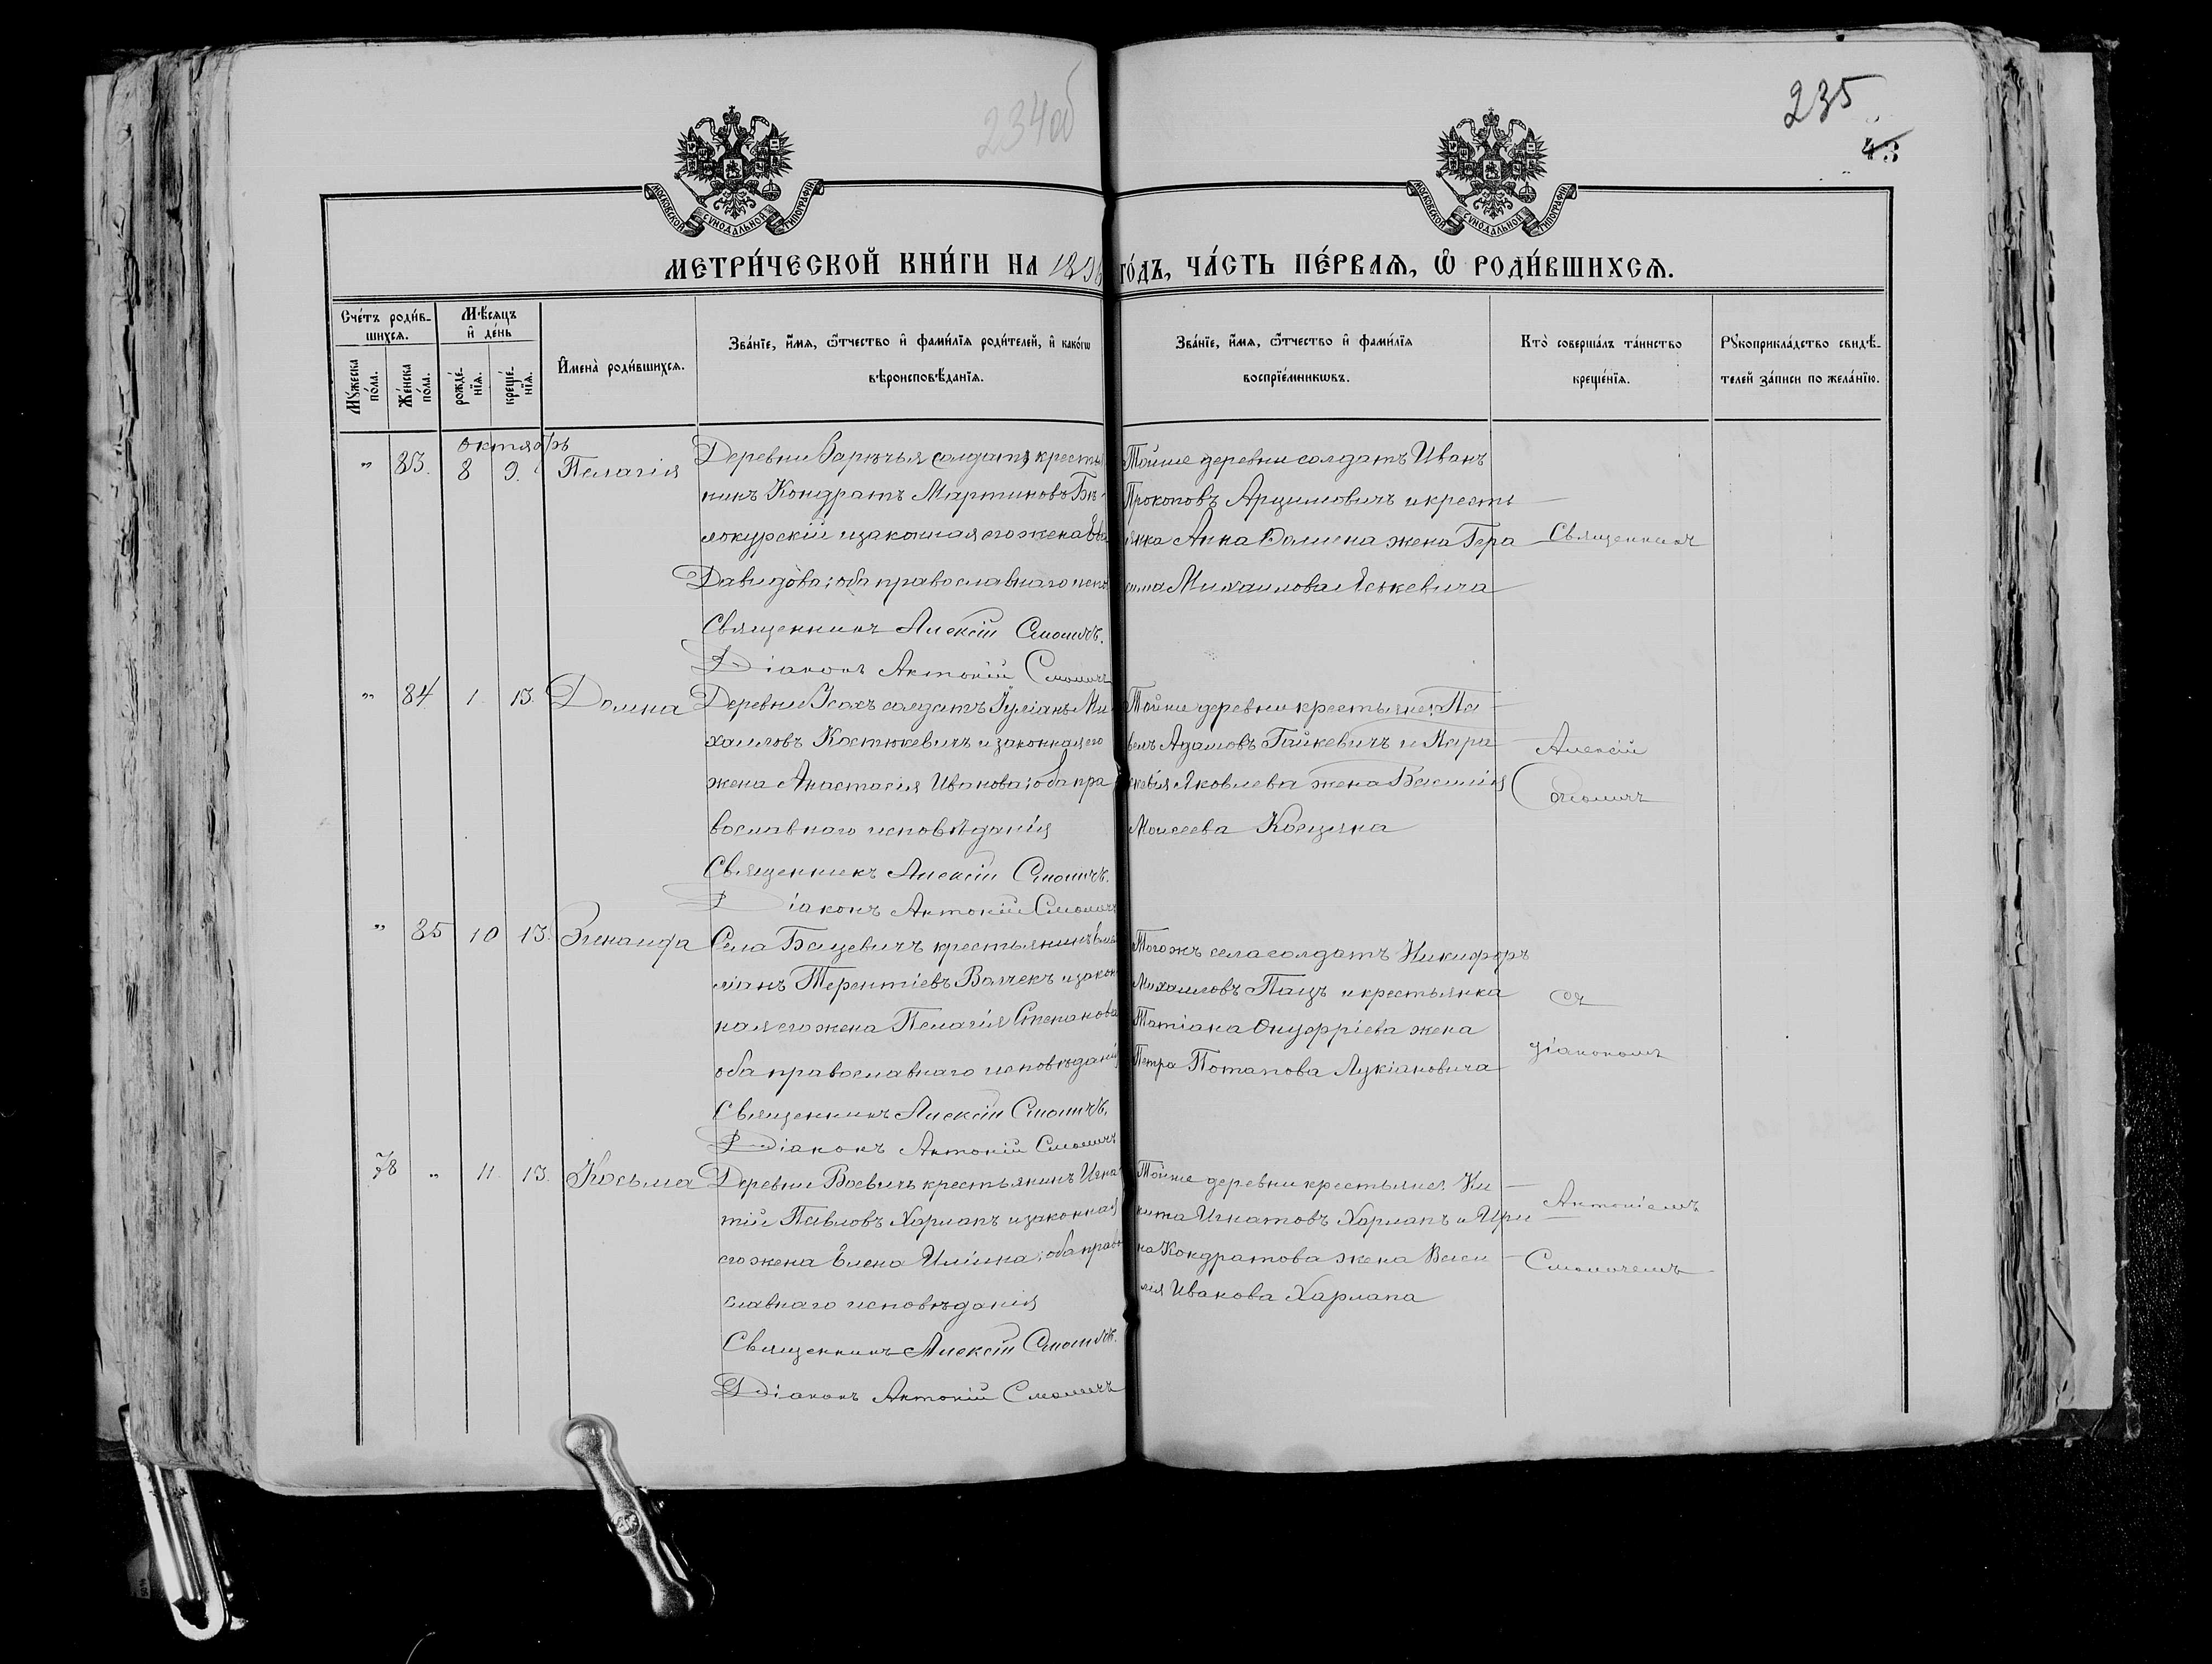 234об
235
43
МОСКОВСКОЙ СѴНОДАЛЬНОЙ ТИПОГРАФІИ
МОСКОВСКОЙ СѴНОДАЛЬНОЙ ТИПОГРАФІИ
МЕТРИ́ЧЕСКОЙ КНИ́ГИ НА 1896 ГО́ДЪ, ЧА́СТЬ ПЕ́РВАѦ, Ѽ РОДИ́ВШИХСѦ.
Сче́тъ роди́в-
шихсѧ.
Мꙋ́жеска по́ла.
Же́нска по́ла.
Мѣ́сѧцъ и҆ де́нь
рожде́-нїѧ.
креще́-нїѧ.
И҆мена̀ роди́вшихсѧ.
Зва́нїе, и҆́мѧ, ѻ҆́тчество и҆ фами́лїѧ роди́телей, и҆ како́гѡ
вѣроисповѣ́данїѧ.
Зва́нїе, и҆́мѧ, ѻ҆́тчество и҆ фами́лїѧ
воспрїе́мникѡвъ.
Кто̀ соверша́лъ та́инство
креще́нїѧ.
Рꙋкоприкла́дство свидѣ́-
телей за́писи по жела́нїю.
октябрь
" 83. 8 9. Пелагія
Деревни солдатъ крестья
нинъ Кондратъ Мартиновъ Бѣ-
локурскій и законная его жена Ева
Давидова; оба православнаго испов
Священникъ Алексій Смоличъ.
Діаконъ Антоній Смоличъ
Тойже деревни солдатъ Иванъ
Прокоповъ Арцимовичъ и кресть
янка Анна жена Гера
сима Михаилова Яськевича
Священникъ
" 84. 1 13. Домна
Деревни солдатъ Іуліанъ Ми
хаиловъ Костюкевичъ и законная его
жена Анастасія Иванова; оба пра
вославнаго исповѣданія
Священникъ Алексій Смоличъ.
Діаконъ Антоній Смоличъ
Тойже деревни крестьяне: Па
велъ Адамовъ Гайкевичъ и Пара
скевія Яковлева жена Василія
Моисеева
Алексій
Смоличъ
" 85 10 13. Зинаида
Села Бацевичъ крестьянинъ Еми
ліанъ Терентіевъ Волчекъ и закон
ная его жена Пелагія Степанова
оба православнаго исповѣданія
Священникъ Алексій Смоличъ.
Діаконъ Антоній Смоличъ
Тогожъ села солдатъ Никифоръ
Михаиловъ Пацъ и крестьянка
Татіана Онуфріева жена
Петра Потапова Лукіановича
съ
діакономъ
78 " 11. 13. Косьма
Деревни Воевичъ крестьянинъ Игна
тій Павловъ Харлапъ и законная
его жена Елена Иліина; оба право
славнаго исповѣданія
Священникъ Алексій Смоличъ.
Діаконъ Антоній Смоличъ
Тойже деревни крестьяне: Ни
кита Игнатовъ Харлапъ и Ири
на Кондратова жена Васи
лія Иванова Харлапа
Антоніемъ
Смоличемъ